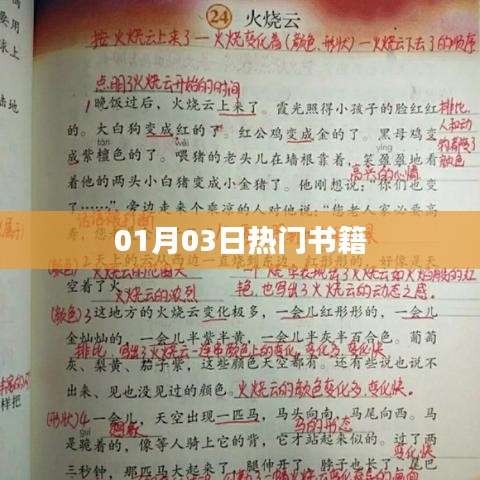 24 火烧云
按火烧云上来了—火烧变化着(颜色、形状)—火烧云下去了的顺序
点明火烧云开始的时间
1晚饭过后，火烧云上来了。霞光照得小孩子的脸红红
的。大白狗变成红的了。红公鸡变成金的了。黑母鸡变
成紫檀色的了。喂猪的老头儿在墙根靠着，笑盈盈地看
着他的两头小白猪变成小金猪了。他刚想说：“你们也变
了……”旁边走来个乘凉的人对他说：“您老人家必要高
01月03日热门书籍
着了火。
(颜色)3这地方的火烧云变化极多，一会儿红彤彤的，一会儿
金灿灿的，一会儿半紫半黄，一会儿半灰半百合色。葡萄
灰、梨黄、茄子紫，这些颜色天空都有。还有些说也说不
出来、见也没见过的颜色。火烧云的颜色变化多，变化快。
(形状)4一会儿，天空出现一匹马，马头向南，马尾向西。马
是跪着的，像等人骑上它的背，它才站起来似的。过了两
三秒钟，那匹马大起来了，腿伸开了，脖子也长了，尾巴